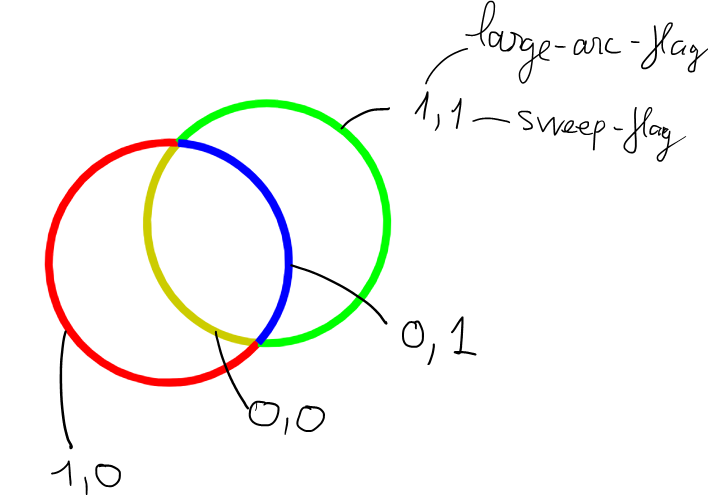 large-arc-flag
1,1 — sweep-flag
0,1
0,0
1,0